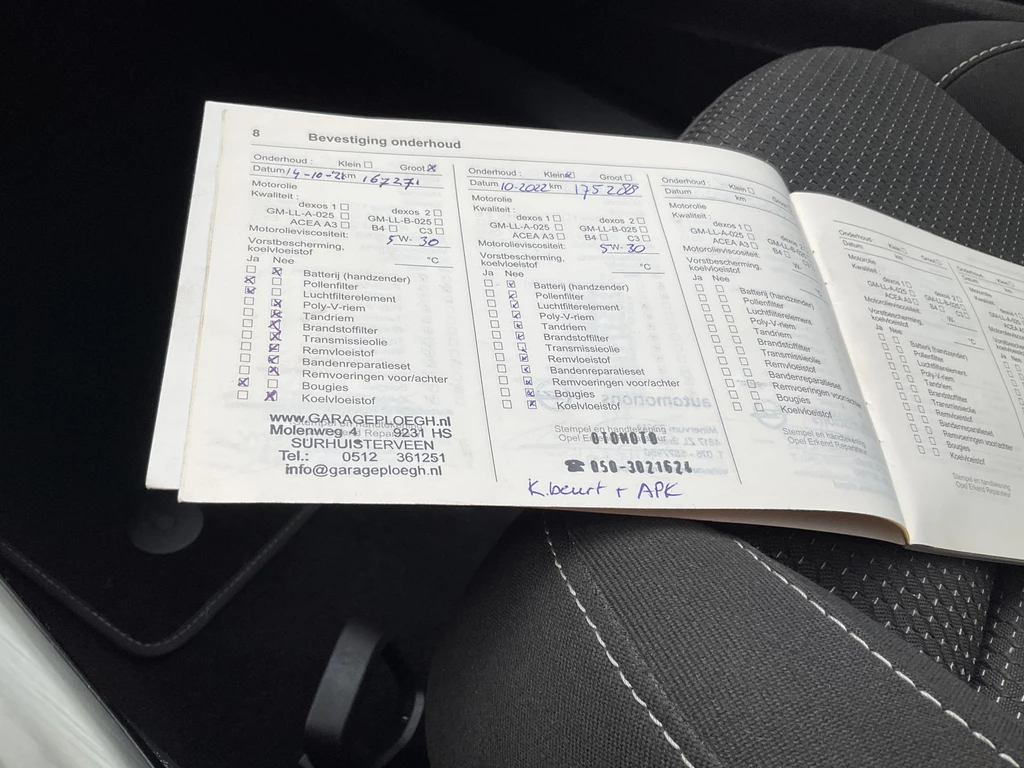 8 Bevestiging onderhoud
Onderhoud : Klein ☐ Groot ☒
Datum 14-10-21 km 167271
Motorolie
Kwaliteit :
dexos 1 ☐ dexos 2 ☐
GM-LL-A-025 ☐ GM-LL-B-025 ☐
ACEA A3 ☐ B4 ☐ C3 ☐
Motorolieviscositeit: 5W-30
Vorstbescherming,
koelvloeistof °C
Ja Nee
☐ ☒ Batterij (handzender)
☒ ☐ Pollenfilter
☒ ☐ Luchtfilterelement
☐ ☒ Poly-V-riem
☐ ☒ Tandriem
☐ ☒ Brandstoffilter
☐ ☒ Transmissieolie
☐ ☒ Remvloeistof
☐ ☒ Bandenreparatieset
☐ ☒ Remvoeringen voor/achter
☒ ☐ Bougies
☐ ☒ Koelvloeistof
www.GARAGEPLOEGH.nl
Molenweg 4 9231 HS
SURHUISTERVEEN
Tel.: 0512 361251
info@garageploegh.nl
Onderhoud : Klein ☒ Groot ☐
Datum 10-2022 km 175289
Motorolie
Kwaliteit :
dexos 1 ☐ dexos 2 ☐
GM-LL-A-025 ☐ GM-LL-B-025 ☐
ACEA A3 ☐ B4 ☐ C3 ☐
Motorolieviscositeit: 5W-30
Vorstbescherming,
koelvloeistof °C
Ja Nee
☐ ☒ Batterij (handzender)
☐ ☒ Pollenfilter
☐ ☒ Luchtfilterelement
☐ ☒ Poly-V-riem
☐ ☒ Tandriem
☐ ☒ Brandstoffilter
☐ ☒ Transmissieolie
☐ ☒ Remvloeistof
☐ ☒ Bandenreparatieset
☐ ☒ Remvoeringen voor/achter
☐ ☒ Bougies
☐ ☒ Koelvloeistof
Stempel en handtekening
Opel Erkend Reparateur
OTOMOTO
☎ 050-3021624
K.beurt + APK
Onderhoud : Klein ☐ Groot
Datum km
Motorolie
Kwaliteit :
dexos 1 ☐ dexos 2
GM-LL-A-025 ☐ GM-LL-B-025
ACEA A3 ☐ B4 ☐ C3
Motorolieviscositeit: W-
Vorstbescherming,
koelvloeistof °C
Ja Nee
☐ ☐ Batterij (handzender)
☐ ☐ Pollenfilter
☐ ☐ Luchtfilterelement
☐ ☐ Poly-V-riem
☐ ☐ Tandriem
☐ ☐ Brandstoffilter
☐ ☐ Transmissieolie
☐ ☐ Remvloeistof
☐ ☐ Bandenreparatieset
☐ ☐ Remvoeringen voor/achter
☐ ☐ Bougies
☐ ☐ Koelvloeistof
Stempel en handtekening
Opel Erkend Reparateur
Onderhoud : Klein ☐ Groot ☐
Datum km
Motorolie
Kwaliteit :
dexos 1 ☐ dexos 2 ☐
GM-LL-A-025 ☐ GM-LL-B-025 ☐
ACEA A3 ☐ B4 ☐ C3 ☐
Motorolieviscositeit: W-
Vorstbescherming,
koelvloeistof °C
Ja Nee
☐ ☐ Batterij (handzender)
☐ ☐ Pollenfilter
☐ ☐ Luchtfilterelement
☐ ☐ Poly-V-riem
☐ ☐ Tandriem
☐ ☐ Brandstoffilter
☐ ☐ Transmissieolie
☐ ☐ Remvloeistof
☐ ☐ Bandenreparatieset
☐ ☐ Remvoeringen voor/achter
☐ ☐ Bougies
☐ ☐ Koelvloeistof
Stempel en handtekening
Opel Erkend Reparateur